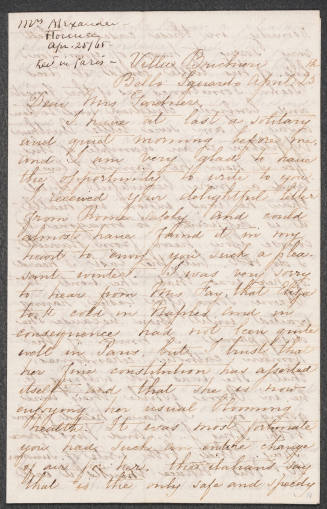 Mrs Alexander
Florence
Apr. 25/65
Rec'd in Paris
Villa Brichieri
Bello Sguardo April 25th
Dear Mrs Gardner,
I have at last a solitary
and quiet morning before me,
and I am very glad to have
the opportunity to write to you
I received your delightful letter
from Rome safely and could
almost have found it in my
heart to envy you such a plea
sant winter. I was very sorry
to hear from Mrs Fay that
took cold in Naples and in
consequence had not been quite
well in Paris but I trust that
her fine constitution has asserted
itself and that she is now
enjoying her usual blooming
health. It was most fortunate
you had such an entire change
of air for her. The italians say
that is the only safe and speedy